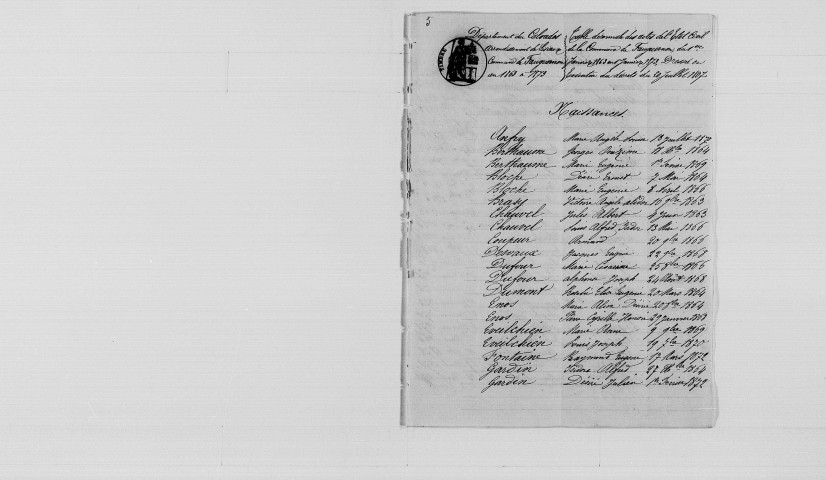 5
Département du Calvados
arrondissement de Lisieux
Commune de Fauguernon
an 1863 à 1873
Table décennale des actes de l'Etat Civil
de la Commune de Fauguernon, du 1er
Janvier 1863 au 1er Janvier 1873, Dressée en
Exécution du décret du 20 juillet 1807
TIMBRE
Naissances
Anfry Marie Angèle 13 Juillet 1870
Berthaume Georges 1864
Berthaume Marie Eugénie 1er Février 1869
Bloche Désiré Ernest 7 Mai 1864
Bloche Marie Eugénie 8 Avril 1866
Brasy Victoire Angèle 16 9bre 1863
Chauvel Jules Albert 4 Juin 1863
Chauvel Louis Alfred Isidor 13 Mai 1866
Coupeur Armand 20 9bre 1866
Desvaux Jacques Eugène 22 1868
Dufour Marie 25 8bre 1866
Dufour alphonse Joseph 24 Août 1868
Dumont Eugène 20 Mars 1864
Enos Maria Désirée 20 1864
Enos Pierre Cyrille Honoré 29 Janvier
Eveilchien Marie 9 9bre 1869
Eveilchien Louis Joseph 19 1870
Fontaine Raymond Eugène 17 Mars 1872
Gardin Isidore Alfred 27 1864
Gardin Désiré Julien 1er Février 1872